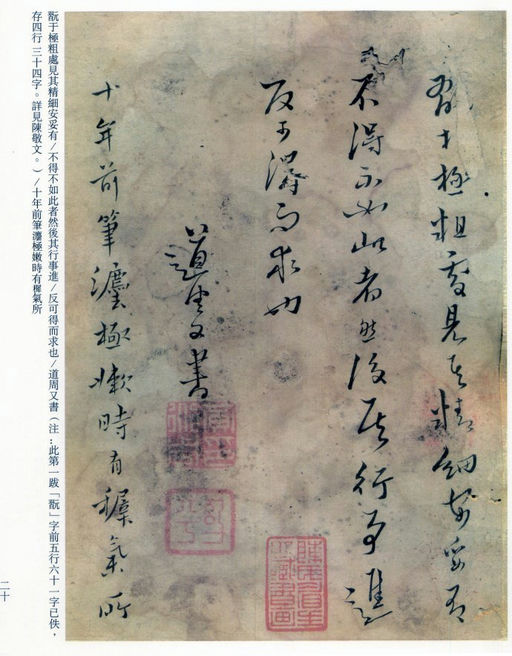 翫于極粗處見其精細安妥有
不得不如此者然後其行事進
反可得而求也
道周又書
十年前筆灋極嫩時有穉氣所
翫于極粗處見其精細安妥有/不得不如此者然後其行事進/反可得而求也/道周又書(注:此第一跋「翫」字前五行六十一字已佚，
存四行三十四字。詳見陳敬文。)/十年前筆灋極嫩時有穉氣所
二十